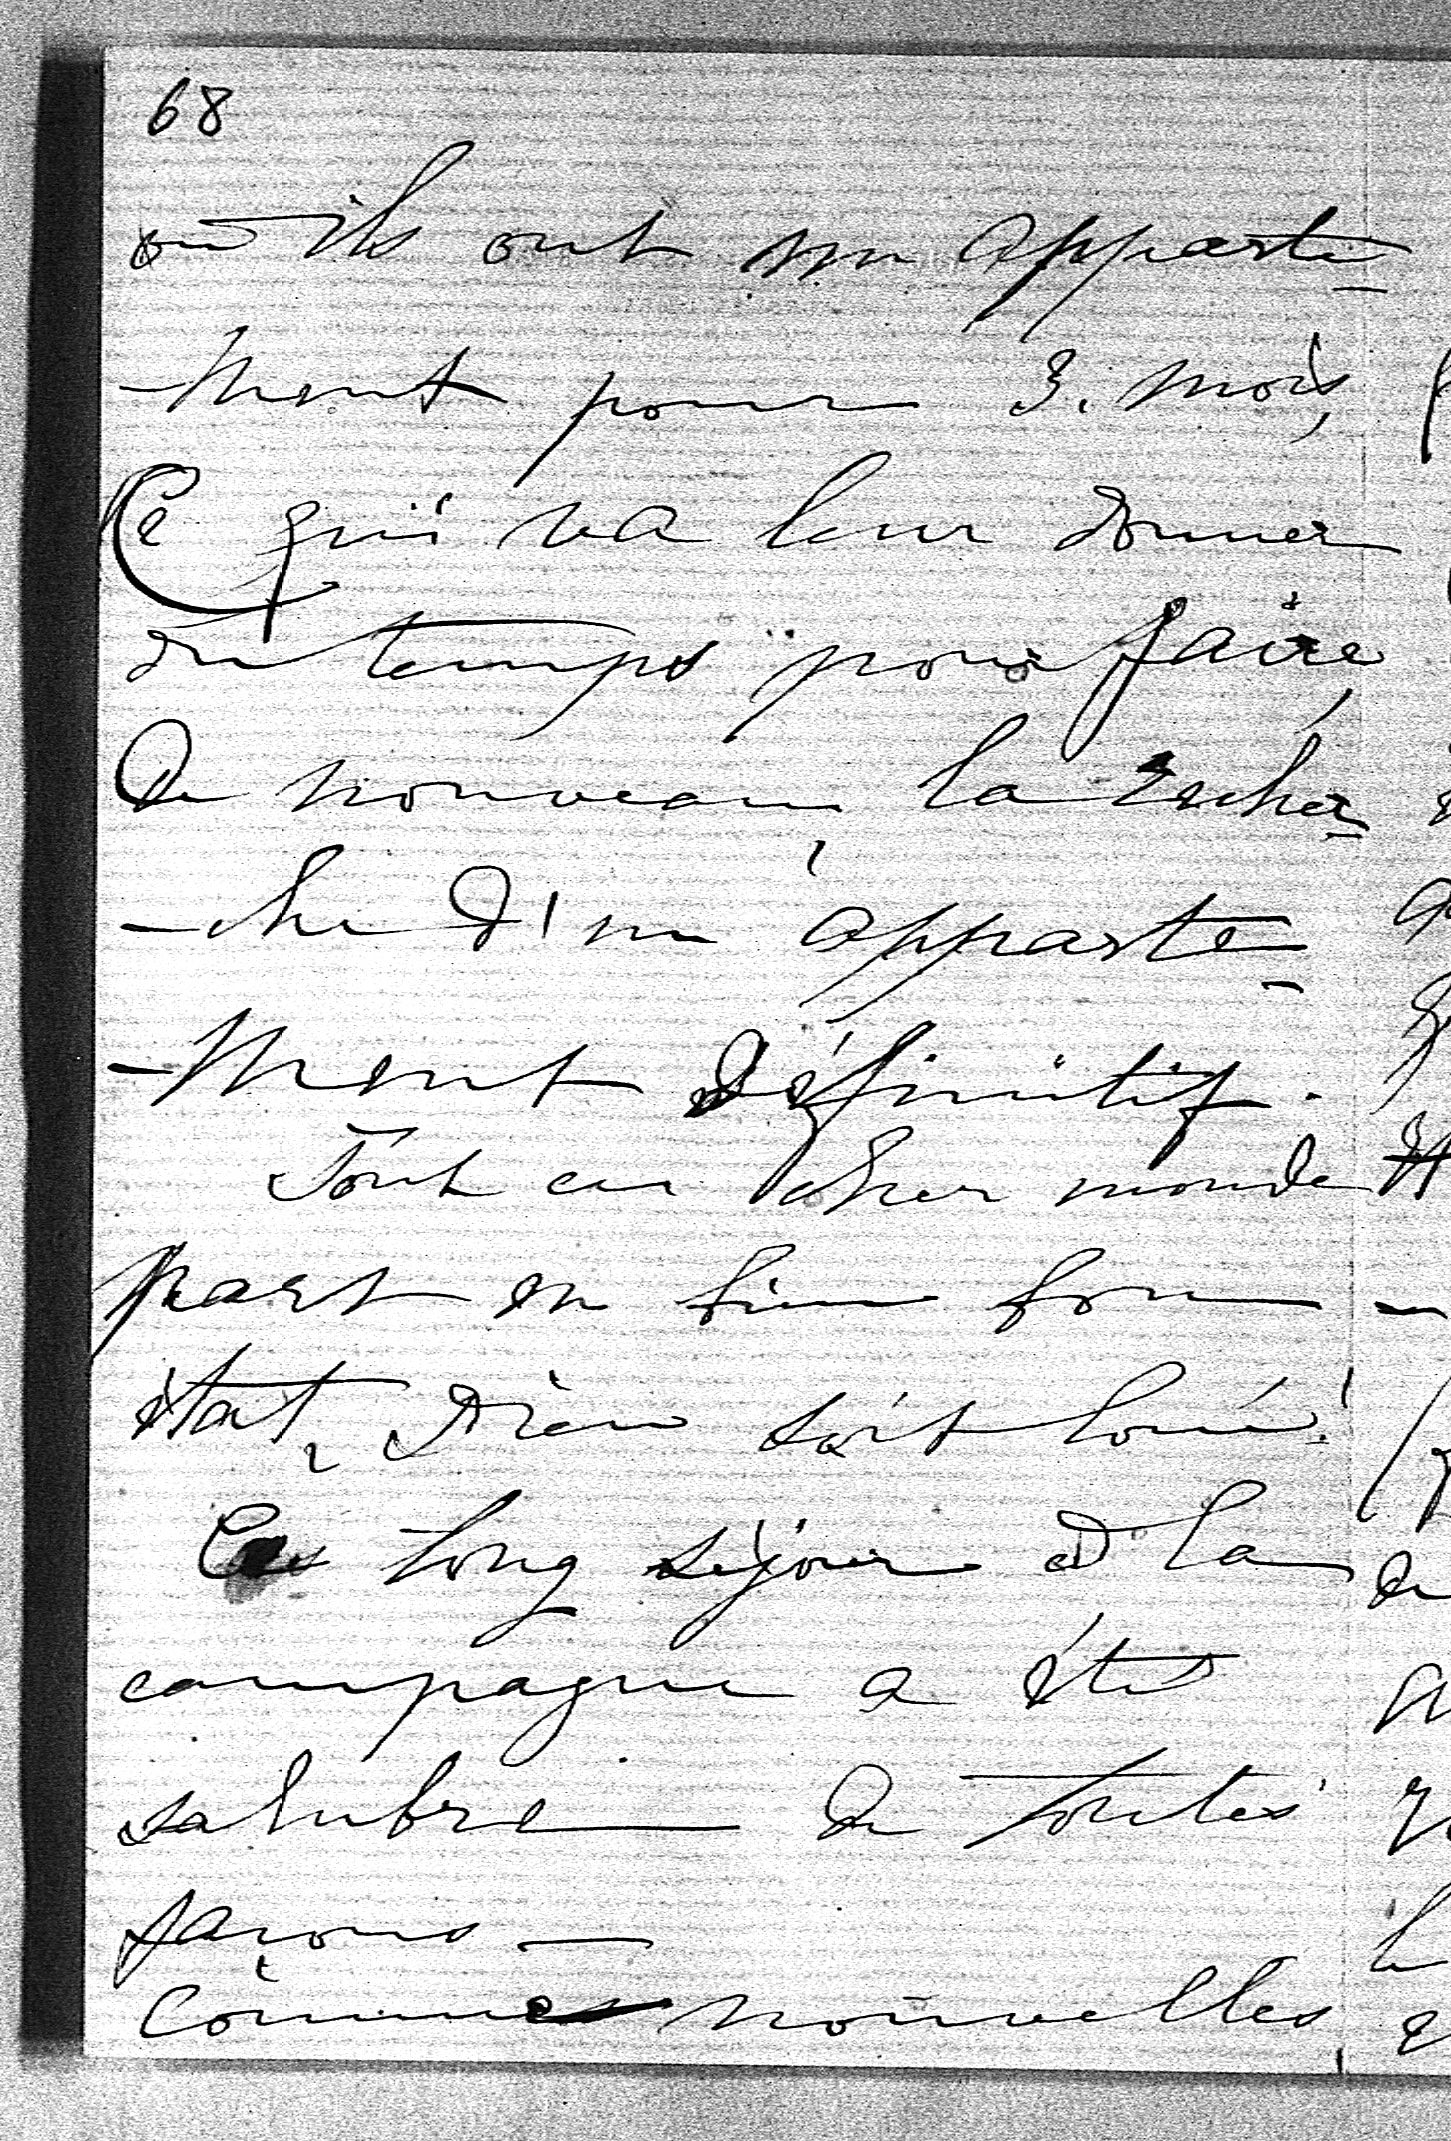 68
où ils ont un apparte-
-ment pour 3. mois,
Ce qui va leur donner
du temps pour faire
De nouveau, la recher-
-che d'un apparte-
-ment définitif.
Tout ce cher monde
part en bien bon
état, Dieu soit loué!
Ces long séjour à la
campagne a été
salubre de toutes
façons —
Comme nouvelles,